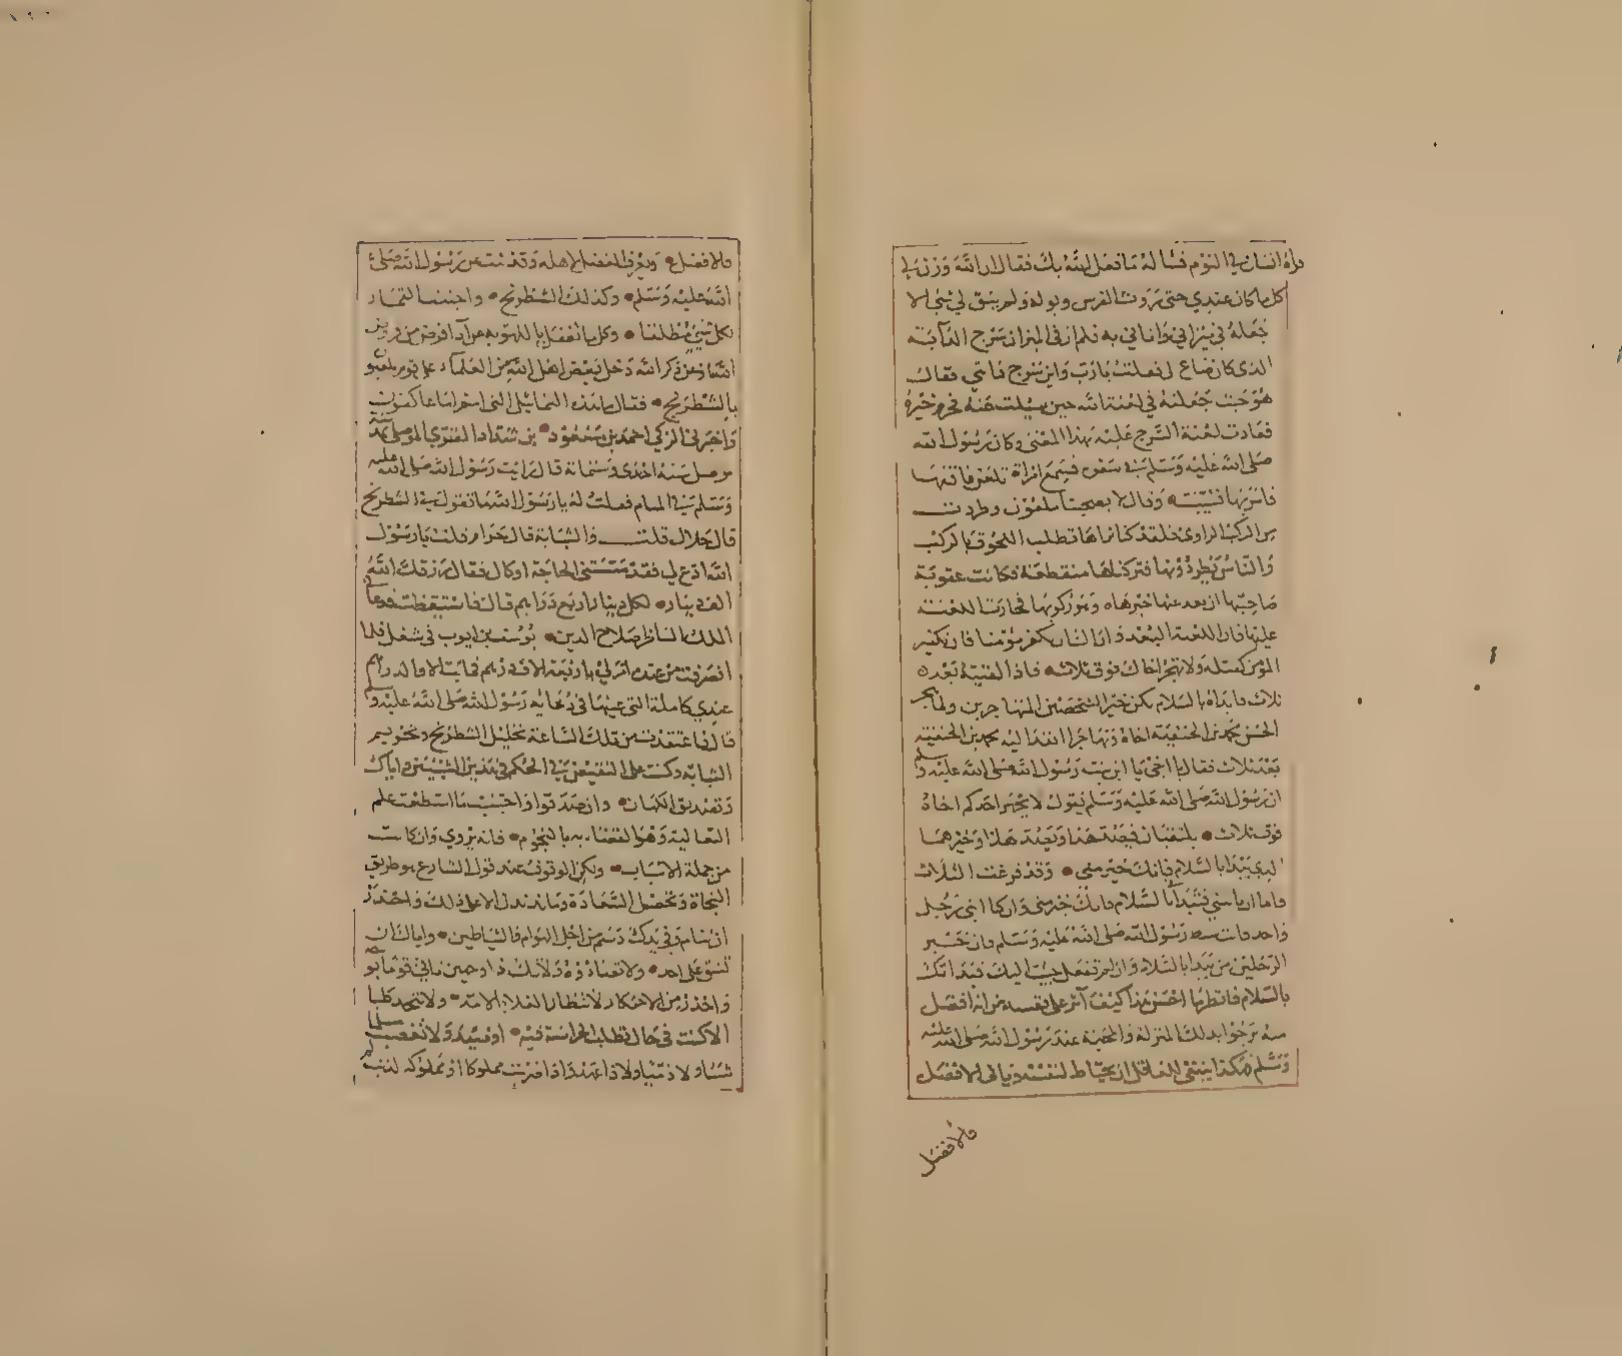 راه انسان في النوم فسأله ما فعل الله بك فقال ان الله وزن لي
كل ما كان عندي حتى روث الفرس وبوله ولم يبق لي شي الا
جعله في ميزاني واتاني به فلم ار في الميزان سرج الدابة
الذي كان ضاع لي فقلت يارب واين سرج فرسي فقال
هو حيث جعلته في لعنة الله حين سيلت عنه فحرم خيره
فعادت لعنة السرج عليه بهذا المعنى وكان رسول الله
صلى الله عليه وسلم في سفر فسمع امراة تلعن ناقتها
فامر بها فسيبت وقال لا يصحبنا ملعون وطردت
من الركب الراوي فلقد كنا نراها تطلب اللحوق بالركب
والناس يطردونها فتركناها منقطعة فكانت عقوبة
صاحبها ان بعد عنها خيرها
عليها فان اللعنة البعد
المؤمن كقتله ولا تهجر اخاك فوق ثلاث فاذا لقيته بعد
ثلاث فابداه بالسلام تكن خير الشخصين المتهاجرين ولما هجر
الحسن محمد بن الحنفية اخاه وتهاجرا انفذ اليه محمد بن الحنفية
بعد ثلاث فقال يا اخي يا ابن بنت رسول الله صلى الله عليه وسلم
ان رسول الله صلى الله عليه وسلم يقول لا يهجر احدكم اخاه
فوق ثلاث يلتقيان فيصد هذا ويصد هذا وخيرهما
الذي يبدا بالسلام فانك خير مني وقد فرغت الثلاث
فاما ان ياتيني فتبدا بالسلام فانك خير مني وان كنا ابني رجل
واحد فانت سبط رسول الله صلى الله عليه وسلم فان خير
الرجلين من يبدا بالسلام وان لم تفعل جيت اليك فبداتك
بالسلام فانظر ما احسن هذا كيف آثر على نفسه من انه افضل
منه يرجوا بذلك المنزلة والمحبة عند رسول الله صلى الله عليه
وسلم هكذا ينبغي للعاقل ان يحتاط لنفسه ويأتي الافضل
فالافضل
فالافضل ويعرف الفضل لاهله وقد ثبت عن رسول الله صلى
الله عليه وسلم وكذلك الشطرنج واجتنب القمار
بكل شي مطلقا وكل ما تغفل باللهو به عن آداء فرض من فروض
الله او عن ذكر الله دخل بعض اهل الله من العلماء على قوم يلعبون
بالشطرنج فقال ما هذه التماثيل التي انتم لها عاكفون
واخبرني الزكي احمد بن مسعود بن شداد المقري الموصلي بمدينة
موصل سنة احدى وستمائة قال رايت رسول الله صلى الله عليه
وسلم في المنام فقلت له يا رسول الله ما تقول في الشطرنج
قال حلال قلت والشبابة قال حرام قلت يا رسول
الله ادع لي فقد مستني الحاجة او كما قال فقال رزقك الله
الف دينار كل دينار اربع دراهم قال فاستيقظت فدعاني
الملك الناصر صلاح الدين يوسف بن ايوب في شغل فلما
انصرفت من عنده امر لي باربعة الاف درهم فما بت الا والدراهم
عندي كاملة التي عينها في دعائه رسول الله صلى الله عليه وسلم
قال فاعتقدت من تلك الساعة تحليل الشطرنج وتحريم
الشبابة وكنت على النقيض في الحكم في هذين الشيئين واياك
وتصديق الكهان وان صدقوا واجتنب ما استطعت علم
التعاليم وهو القضاء به بالنجوم فانه يردي وان كانت
من جملة الاسباب ولكن الوقوف عند قول الشارع هو طريق
النجاة وتحصيل السعادة وما ندندن الا على ذلك واحذر
ان تنام وفي يدك دسم من اجل الهوام والشياطين واياك ان
واحذر من الاحتكار لانتظار الغلاء لامة ولا تتخذ كلبا
الا كنت في حال تطلب الحراسة فيه او صيد ولا تغصب مسلما
شيئا ولا ذميا ولا ذا عهد واذا ضربت مملوكا او مملوكه